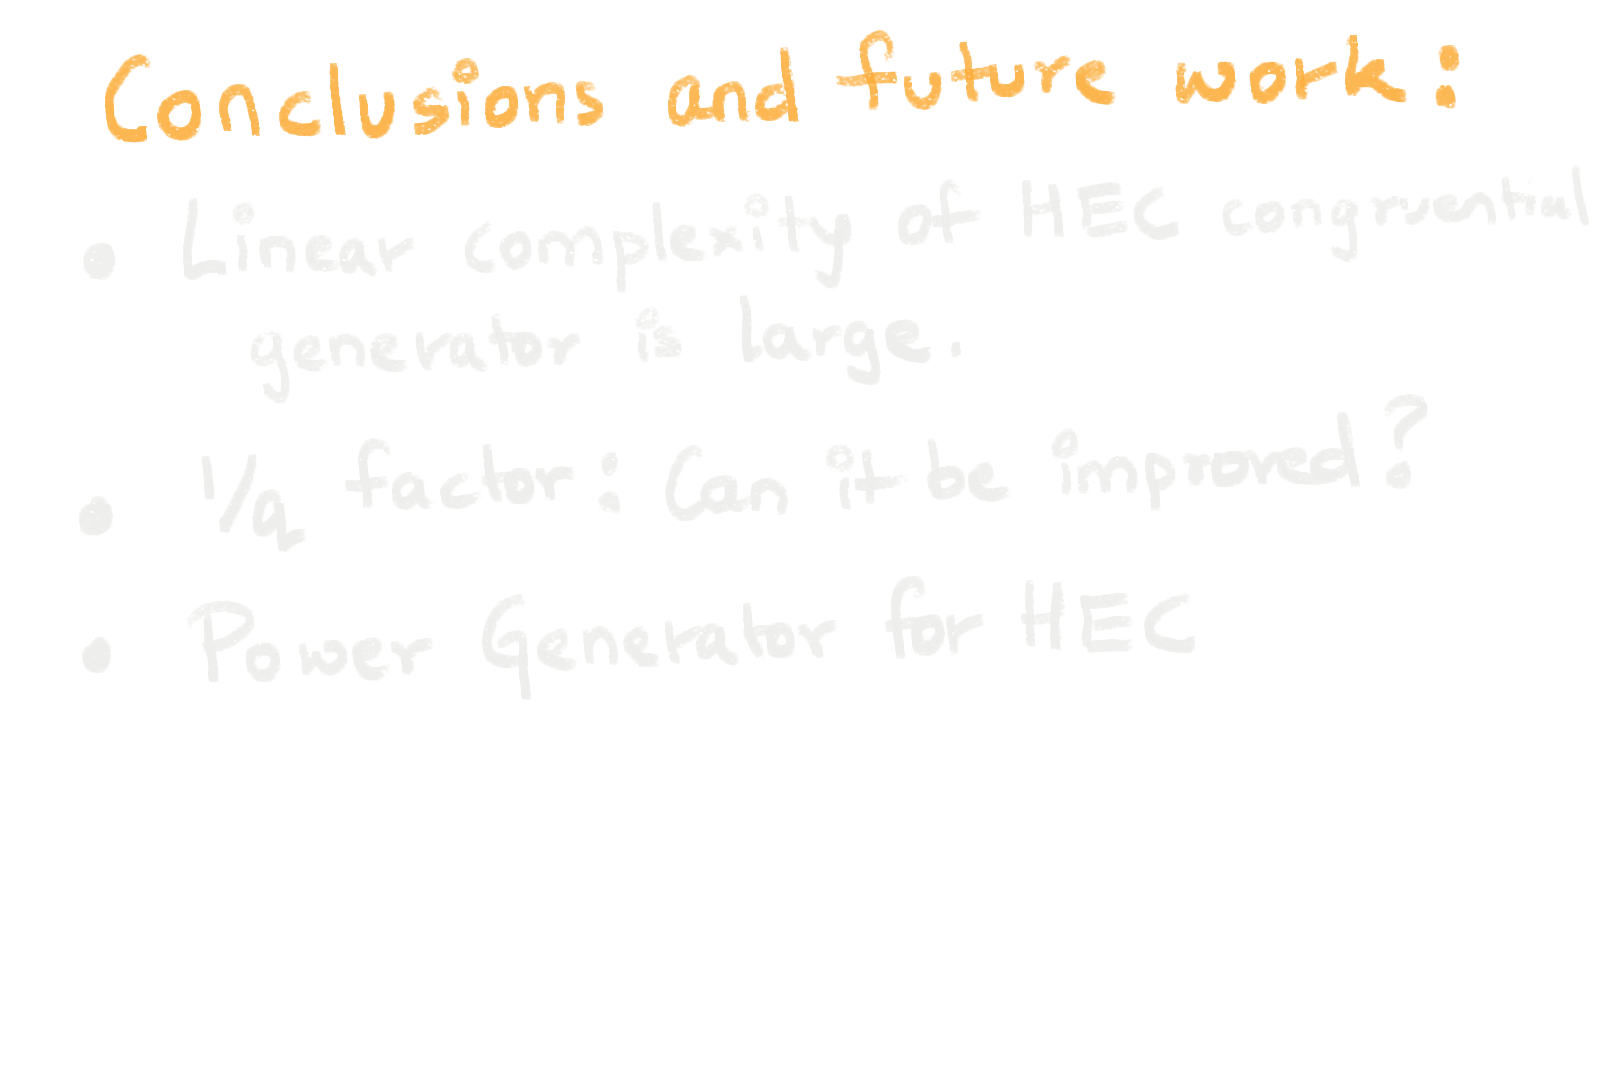 Conclusions and future work:
• Linear complexity of HEC congruential
generator is large.
• 1/q factor: Can it be improved?
• Power Generator for HEC